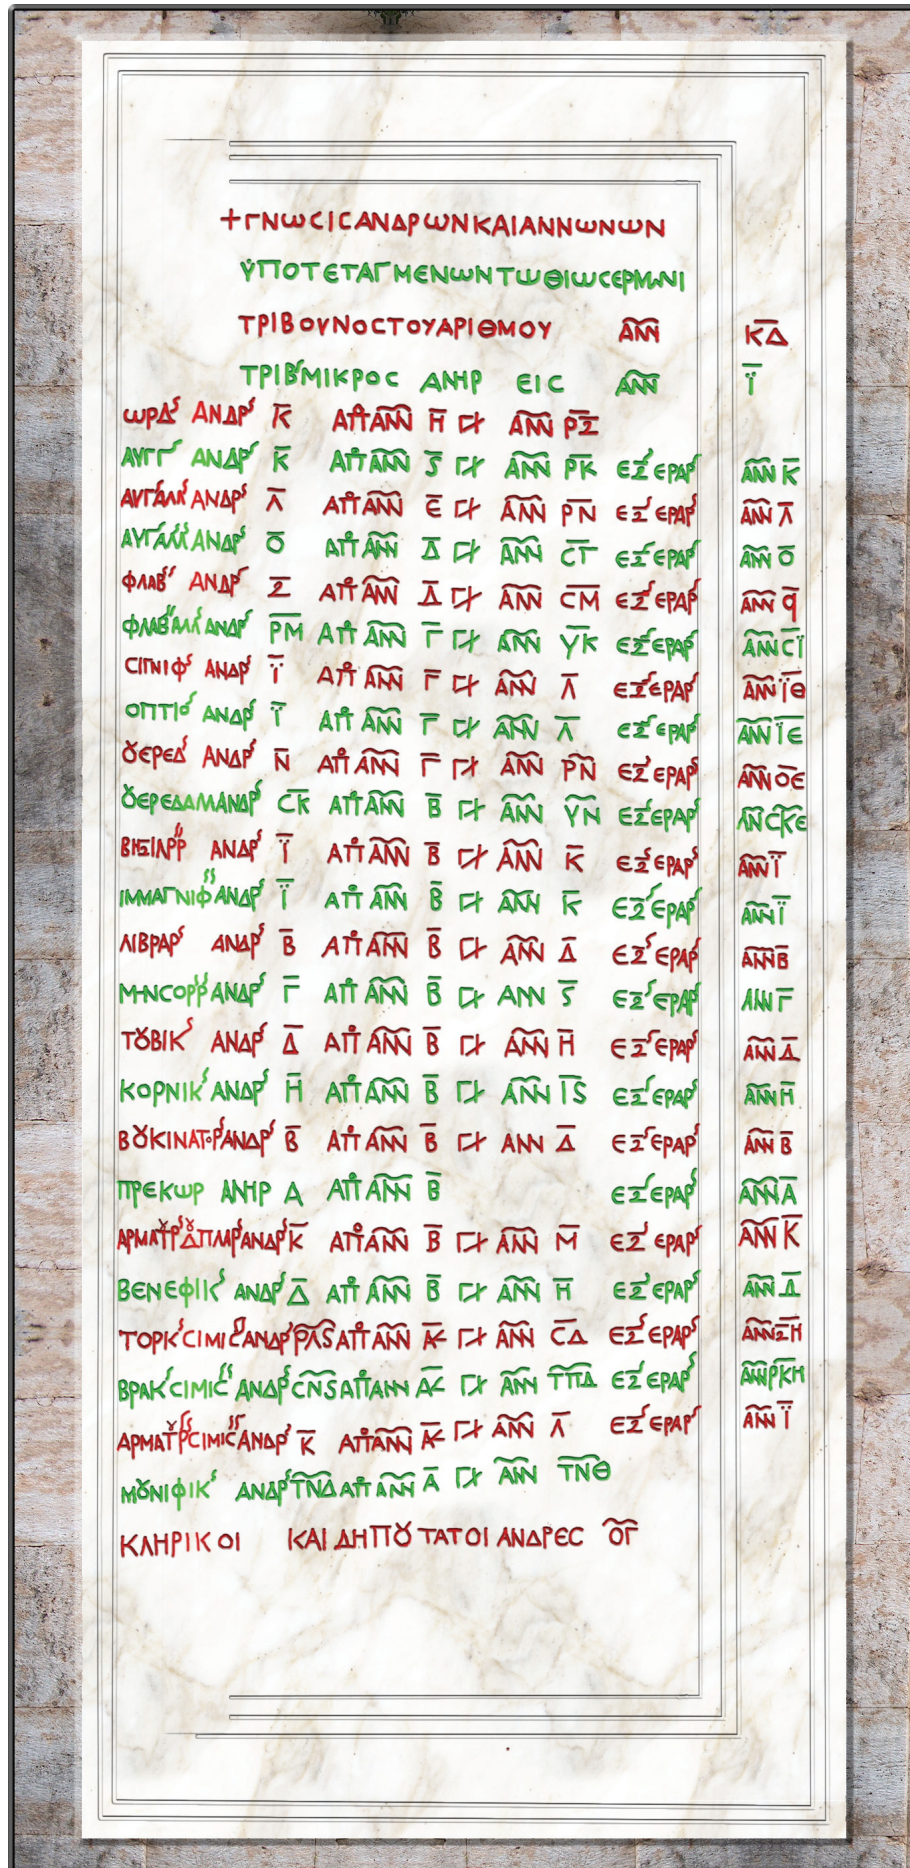 +ΓΝωCΙCΑΝΔΡωΝΚΑΙΑΝΝωΝωΝ
ΫΠΟΤΕΤΑΓΜΕΝωΝΤωΘΙωCΕΡΜωΝΙ
ΤΡΙΒΟVΝΟCΤΟΥΑΡΙΘΜΟΥ ΑΝΝ ΚΔ
ΤΡΙΒʹΜΙΚΡΟC ΑΝΗΡ ΕΙC ΑΝΝ Ϊ
ωΡΔʹ ΑΝΔΡʹ Κ ΑΠ°ΑΝΝ Η ΓΙ ΑΝΝ ΡΞ
ΑΥΓΓʹ ΑΝΔΡʹ Κ ΑΠ°ΑΝΝ Ϛ ΓΙ ΑΝΝ ΡΚ ΕΞʹ ΕΡΑΡʹ ΑΝΝ Κ
ΑΥΓΑΛΛʹ ΑΝΔΡʹ Λ ΑΠ°ΑΝΝ Ε ΓΙ ΑΝΝ ΡΝ ΕΞʹ ΕΡΑΡʹ ΑΝΝ Λ
ΑΥΓΑΛΛʹ ΑΝΔΡʹ Ο ΑΠ°ΑΝΝ Δ ΓΙ ΑΝΝ CΓ ΕΞʹ ΕΡΑΡʹ ΑΝΝ Ο
ΦΛΑΒʹ ΑΝΔΡʹ Ξ ΑΠ°ΑΝΝ Δ ΓΙ ΑΝΝ CΜ ΕΞʹ ΕΡΑΡʹ ΑΝΝ Ϙ
ΦΛΑΒʹΑΛΛʹ ΑΝΔΡʹ ΡΜ ΑΠ°ΑΝΝ Γ ΓΙ ΑΝΝ ΥΚ ΕΞʹ ΕΡΑΡʹ ΑΝΝ CΪ
CΙΓΝΙΦʹ ΑΝΔΡʹ Ϊ ΑΠ°ΑΝΝ Γ ΓΙ ΑΝΝ Λ ΕΞʹ ΕΡΑΡʹ ΑΝΝ ΪΘ
ΟΠΤΙΟʹ ΑΝΔΡʹ Ϊ ΑΠ°ΑΝΝ Γ ΓΙ ΑΝΝ Λ ΕΞʹ ΕΡΑΡʹ ΑΝΝ ΪΕ
ȢΕΡΕΔʹ ΑΝΔΡʹ Ν ΑΠ°ΑΝΝ Γ ΓΙ ΑΝΝ ΡΝ ΕΞʹ ΕΡΑΡʹ ΑΝΝ ΟΕ
ȢΕΡΕΔΑΜΑΝΔΡʹ CΚ ΑΠ°ΑΝΝ Β ΓΙ ΑΝΝ ΥΝ ΕΞʹ ΕΡΑΡʹ ΑΝ CΚΕ
ΒΗΞΙΛΡΡʹ ΑΝΔΡʹ Ϊ ΑΠ°ΑΝΝ Β ΓΙ ΑΝΝ Κ ΕΞʹ ΕΡΑΡʹ ΑΝΝ Ϊ
ΙΜΜΑΓΝΙΦʹ ΑΝΔΡʹ Ϊ ΑΠ°ΑΝΝ Β ΓΙ ΑΝΝ Κ ΕΞʹ ΕΡΑΡʹ ΑΝΝ Ϊ
ΛΙΒΡΑΡʹ ΑΝΔΡʹ Β ΑΠ°ΑΝΝ Β ΓΙ ΑΝΝ Δ ΕΞʹ ΕΡΑΡʹ ΑΝΝ Β
ΜΗΝCΟΡΡʹ ΑΝΔΡʹ Γ ΑΠ°ΑΝΝ Β ΓΙ ΑΝΝ Ϛ ΕΞʹ ΕΡΑΡʹ ΑΝΝ Γ
ΤȢΒΙΚʹ ΑΝΔΡʹ Δ ΑΠ°ΑΝΝ Β ΓΙ ΑΝΝ Η ΕΞʹ ΕΡΑΡʹ ΑΝΝ Δ
ΚΟΡΝΙΚʹ ΑΝΔΡʹ Η ΑΠ°ΑΝΝ Β ΓΙ ΑΝΝ ΙϚ ΕΞʹ ΕΡΑΡʹ ΑΝΝ Η
ΒȢΚΙΝΑΤΟΡʹ ΑΝΔΡʹ Β ΑΠ°ΑΝΝ Β ΓΙ ΑΝΝ Δ ΕΞʹ ΕΡΑΡʹ ΑΝΝ Β
ΠΡΕΚωΡ ΑΝΗΡ Α ΑΠ°ΑΝΝ Β ΕΞʹ ΕΡΑΡʹ ΑΝΝ Α
ΑΡΜΑΤȢΡʹ ΔȢΠΛΑΡʹ ΑΝΔΡʹ Κ ΑΠ°ΑΝΝ Β ΓΙ ΑΝΝ Μ ΕΞʹ ΕΡΑΡʹ ΑΝΝ Κ
ΒΕΝΕΦΙΚʹ ΑΝΔΡʹ Δ ΑΠ°ΑΝΝ Β ΓΙ ΑΝΝ Η ΕΞʹ ΕΡΑΡʹ ΑΝΝ Δ
ΤΟΡΚʹCΙΜΙCʹ ΑΝΔΡʹ ΡΛϚ ΑΠ°ΑΝΝ Α𐅵 ΓΙ ΑΝΝ CΔ ΕΞʹ ΕΡΑΡʹ ΑΝΝ ΞΗ
ΒΡΑΚʹCΙΜΙCʹ ΑΝΔΡʹ CΝϚ ΑΠ°ΑΝΝ Α𐅵 ΓΙ ΑΝΝ ΤΠΔ ΕΞʹ ΕΡΑΡʹ ΑΝΝ ΡΚΗ
ΑΡΜΑΤȢΡʹCΙΜΙCʹ ΑΝΔΡʹ Κ ΑΠ°ΑΝΝ Α𐅵 ΓΙ ΑΝΝ Λ ΕΞʹ ΕΡΑΡʹ ΑΝΝ Ϊ
ΜȢΝΙΦΙΚʹ ΑΝΔΡʹ ΤΝΔ ΑΠ°ΑΝΝ Α ΓΙ ΑΝΝ ΤΝΘ
ΚΛΗΡΙΚΟΙ ΚΑΙ ΔΗΠȢΤΑΤΟΙ ΑΝΔΡΕC ΟΓ